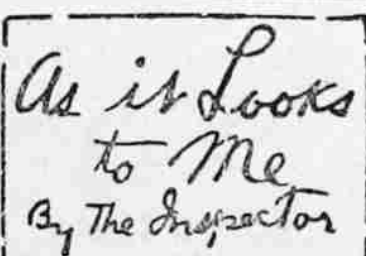 As it Looks
to Me
By The Inspector